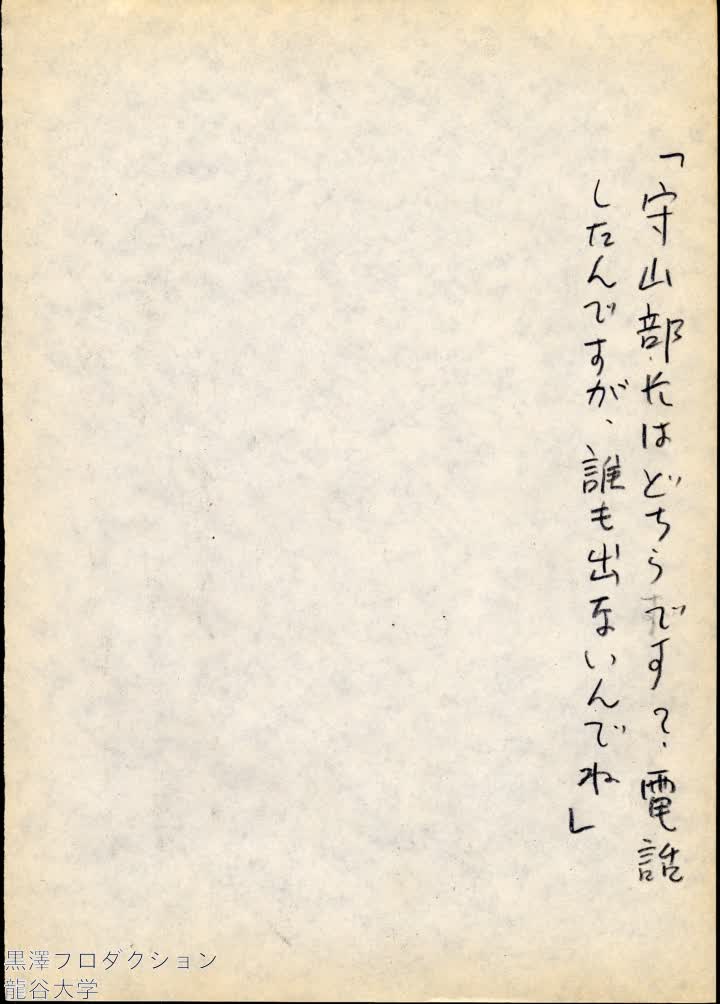 「守山部長はどちらです？電話
したんですが、誰も出ないんでね」
黒澤プロダクション
龍谷大学